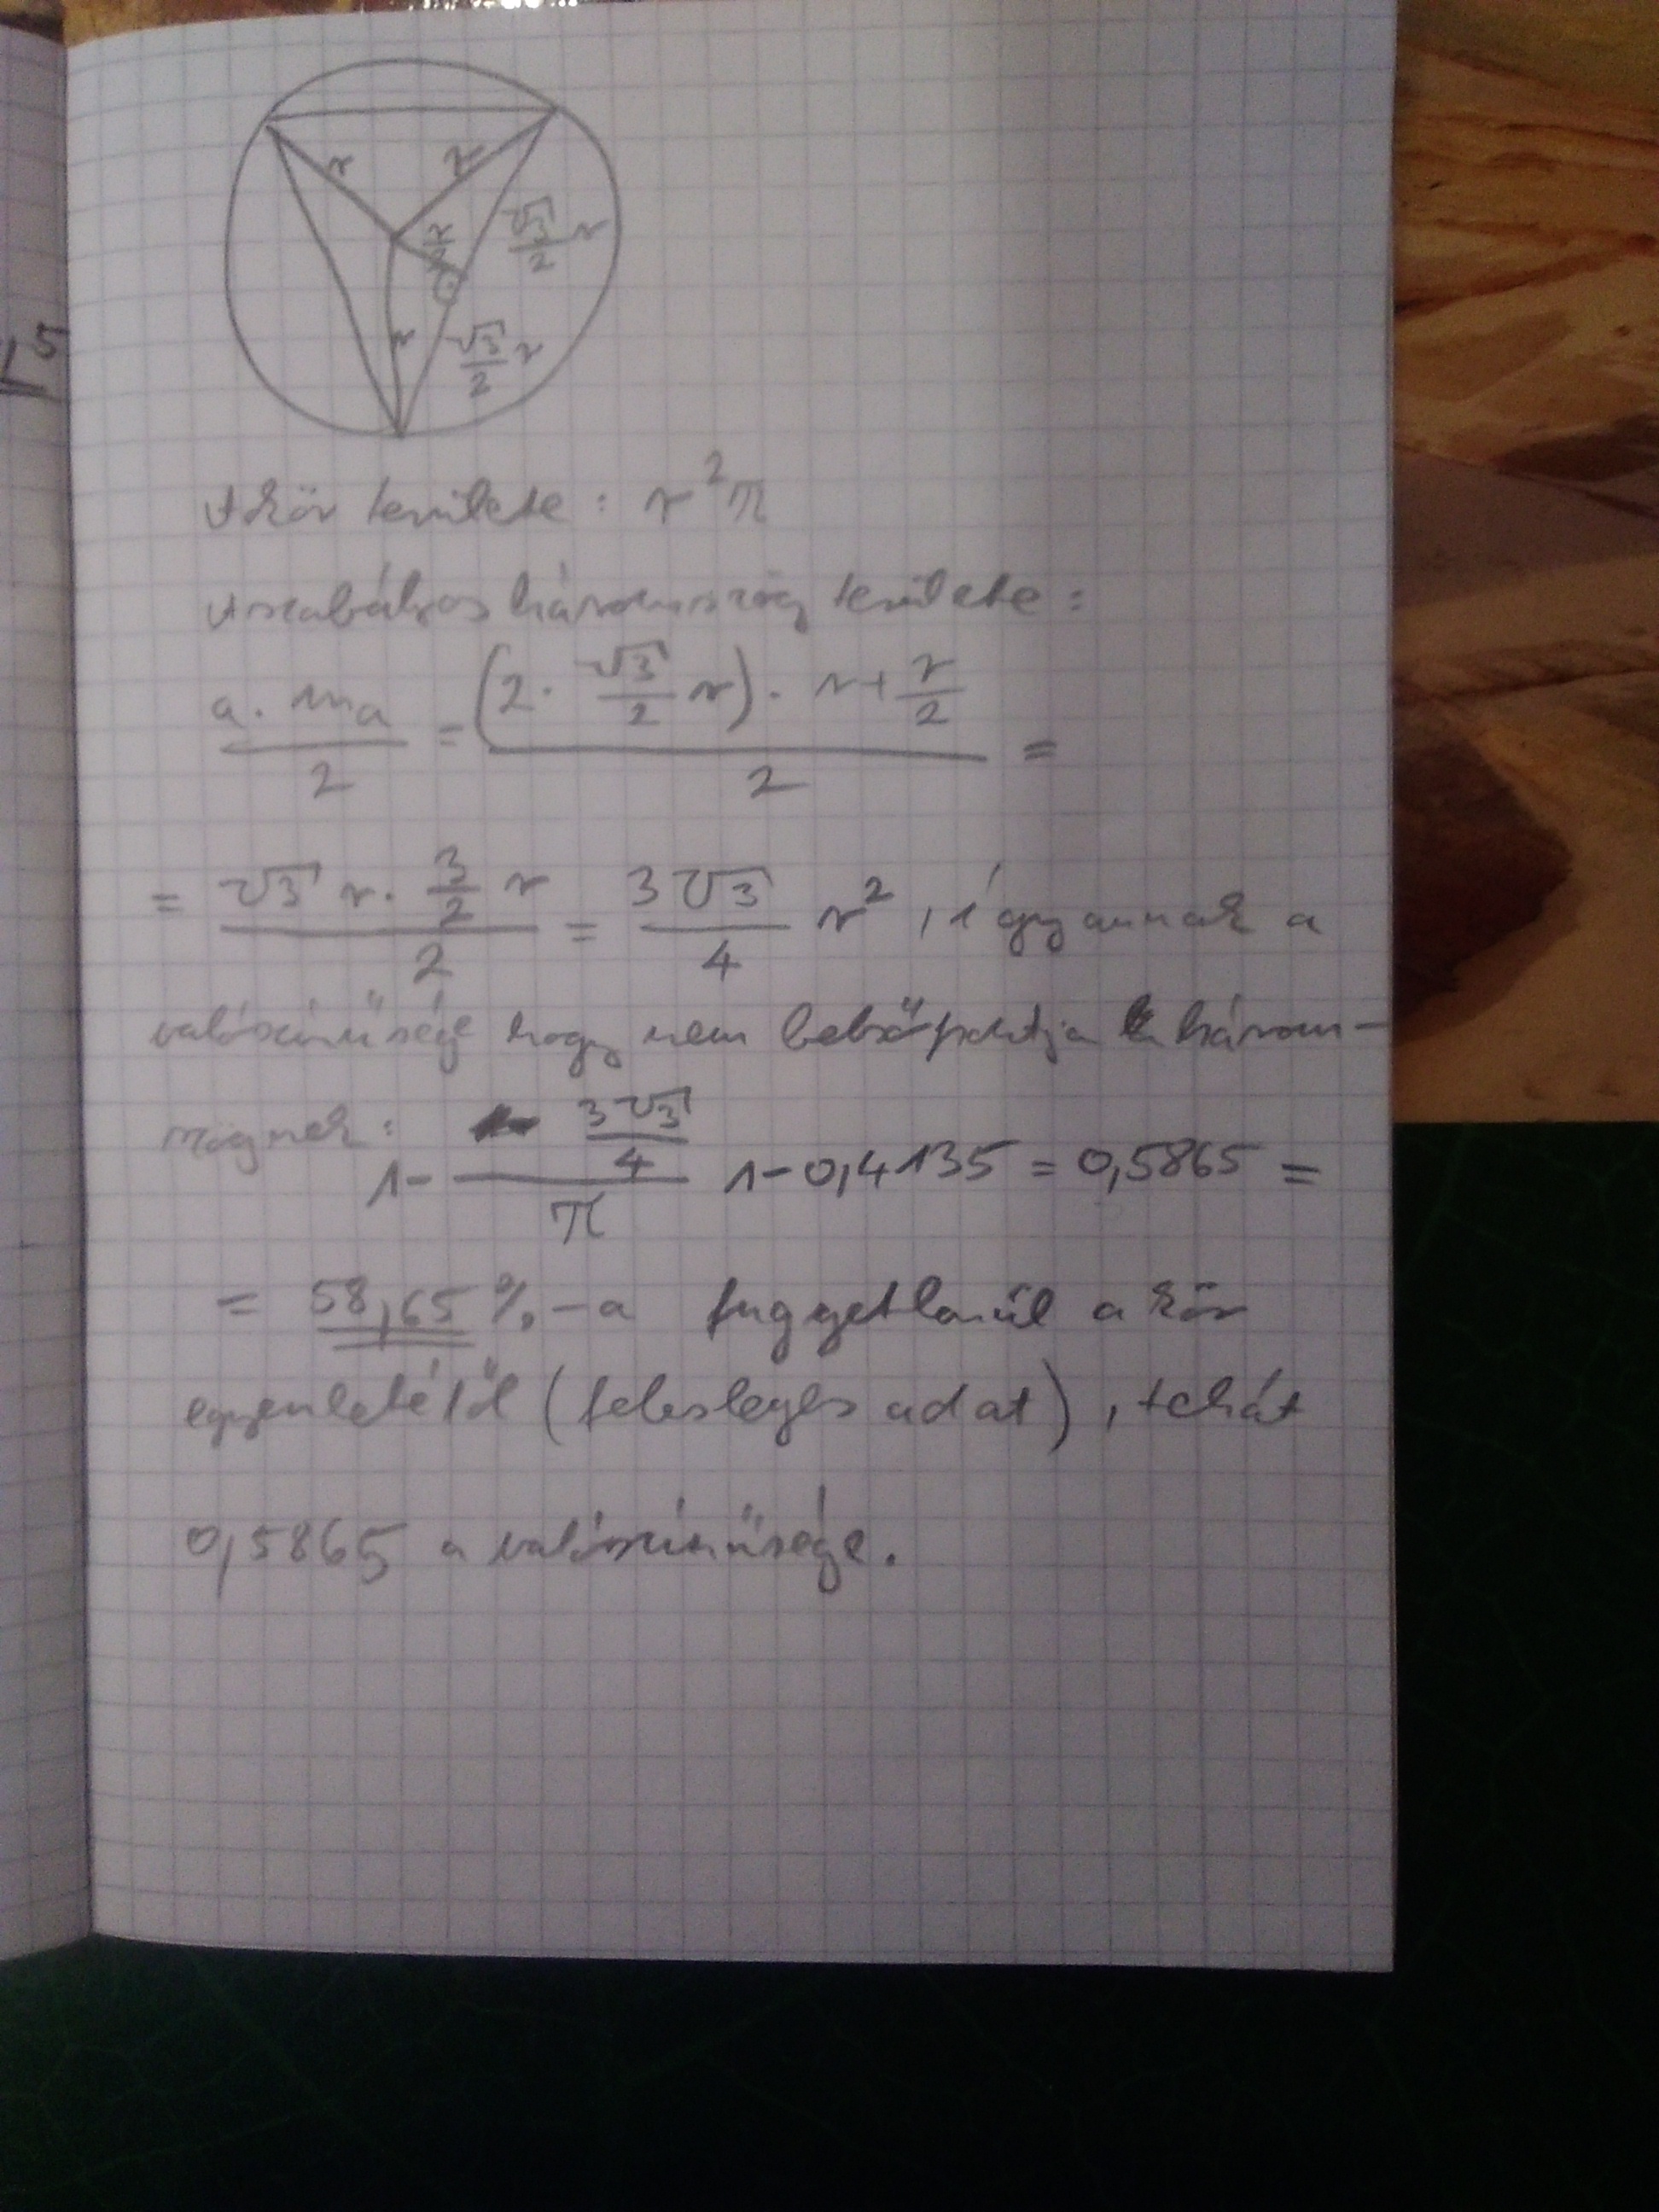 r r
r/2 √3/2 r
r √3/2 r
5
A kör területe: r²π
A szabályos háromszög területe:
a · mₐ / 2 = (2 · √3/2 r) · r + r/2 / 2 =
= √3 r · 3/2 r / 2 = 3√3/4 r², így annak a
valószínűsége hogy nem belső pontja a három-
szögnek:
1 - 3√3/4 / π 1 - 0,4135 = 0,5865 =
= 58,65 % -a függetlenül a kör
egyenletétől (felesleges adat), tehát
0,5865 a valószínűsége.